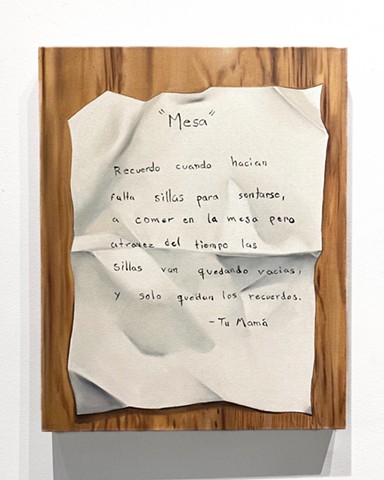 "Mesa"
Recuerdo cuando hacian
falta sillas para sentarse,
a comer en la mesa pero
atravez del tiempo las
sillas van quedando vacias,
y solo quedan los recuerdos.
- Tu Mamá